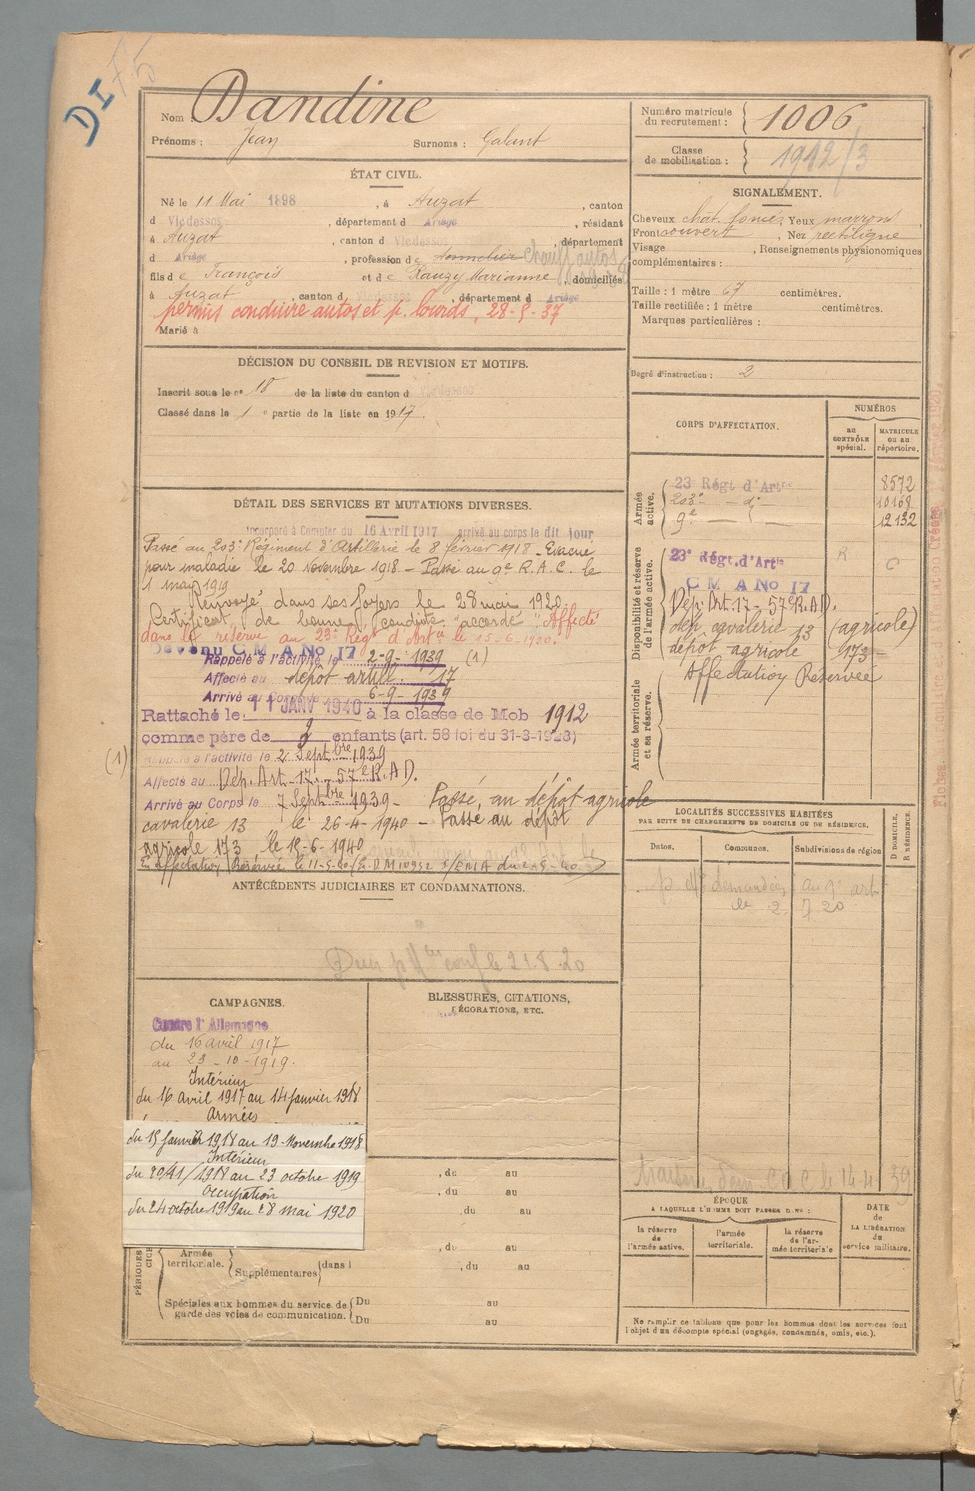 DI 75
Nom Dandine
Prénoms : Jean Surnoms : Galant
Numéro matricule du recrutement : 1006
Classe de mobilisation : 1912/3
ÉTAT CIVIL.
Né le 11 Mai 1898, à Auzat, canton
d Vicdessos, département d Ariège, résidant
à Auzat, canton d Vicdessos, département
d Ariège, profession de Chauff autos
fils de François et de Rauzy Marianne, domiciliés
à Auzat, canton d Vicdessos, département d Ariège
permis conduire autos et p. lourds, 28-5-37
Marié à
SIGNALEMENT.
Cheveux chat. foncé, Yeux marron
Front ouvert, Nez rectiligne
Visage , Renseignements physionomiques
complémentaires :
Taille : 1 mètre 67 centimètres.
Taille rectifiée : 1 mètre centimètres.
Marques particulières :
Degré d'instruction : 2
DÉCISION DU CONSEIL DE REVISION ET MOTIFS.
Inscrit sous le n° 18 de la liste du canton d Vicdessos
Classé dans la 1e partie de la liste en 1917.
CORPS D'AFFECTATION.
NUMÉROS
au contrôle spécial.
MATRICULE ou au répertoire.
Armée active.
23e Régt d'Artie 8572
203e — d° 10168
9e — 12132
Disponibilité et réserve de l'armée active.
23e Régt. d'Artie R
C M A No 17
Dép. Art. 17 - 57e R.A.D.
dép cavalerie 13 (agricole)
dépôt agricole 173
Armée territoriale et sa réserve.
Affectation Réservée
DÉTAIL DES SERVICES ET MUTATIONS DIVERSES.
Incorporé à Compter du 16 Avril 1917 arrivé au corps le dit jour
Passé au 203e Régiment d'Artillerie le 8 février 1918 - Evacué
pour maladie le 20 novembre 1918 - Passé au 9e R.A.C. le
1 mai 1919
Renvoyé dans ses foyers le 28 mai 1920.
Certificat de bonne conduite "accordé" Affecté
dans la réserve au 23e Régt d'Artie le 15-6-1920.
Devenu C M A No 17
Rappelé à l'activité le 2-9-1939 (1)
Affecté au dépôt artill. 17
Arrivé au Corps le 6-9-1939
Rattaché le 11 JANV 1940 à la classe de Mob 1912
comme père de enfants (art. 58 loi du 31-3-1928)
(1) Rappelé à l'activité le 2 Septbre 1939
Affecté au Dép. Art. 17 - 57e R.A.D.
Arrivé au Corps le 7 Septbre 1939 - Passé, au dépôt agricole
cavalerie 13 le 26-4-1940 - Passé au dépôt
agricole 173 le 15-6-1940
En Affectation Réservée le 11-5-40
LOCALITÉS SUCCESSIVES HABITÉES
PAR SUITE DE CHANGEMENTS DE DOMICILE OU DE RÉSIDENCE.
Dates. Communes. Subdivisions de région
D DOMICILE, R RÉSIDENCE.
au 9e art
le 2. 7 20
ANTÉCÉDENTS JUDICIAIRES ET CONDAMNATIONS.
le 21.8.20
CAMPAGNES.
Contre l'Allemagne
du 16 avril 1917
au 23-10-1919.
Intérieur
du 16 Avril 1917 au 14 janvier 1918
Armées
du 15 janvier 1918 au 19 Novembre 1918
Intérieur
du 20/11/1918 au 23 octobre 1919
Occupation
du 24 octobre 1919 au 28 mai 1920
BLESSURES, CITATIONS,
DÉCORATIONS, ETC.
, du au
, du au
, du au
, du au
PÉRIODES
Armée territoriale. Supplémentaires dans l , du au
Spéciales aux hommes du service de garde des voies de communication. Du au
Du au
ÉPOQUE
A LAQUELLE L'HOMME DOIT PASSER DANS :
la réserve de l'armée active.
l'armée territoriale.
la réserve de l'armée territoriale
DATE de LA LIBÉRATION du service militaire.
Ne remplir ce tableau que pour les hommes dont les services font
l'objet d'un décompte spécial (engagés, condamnés, omis, etc.).